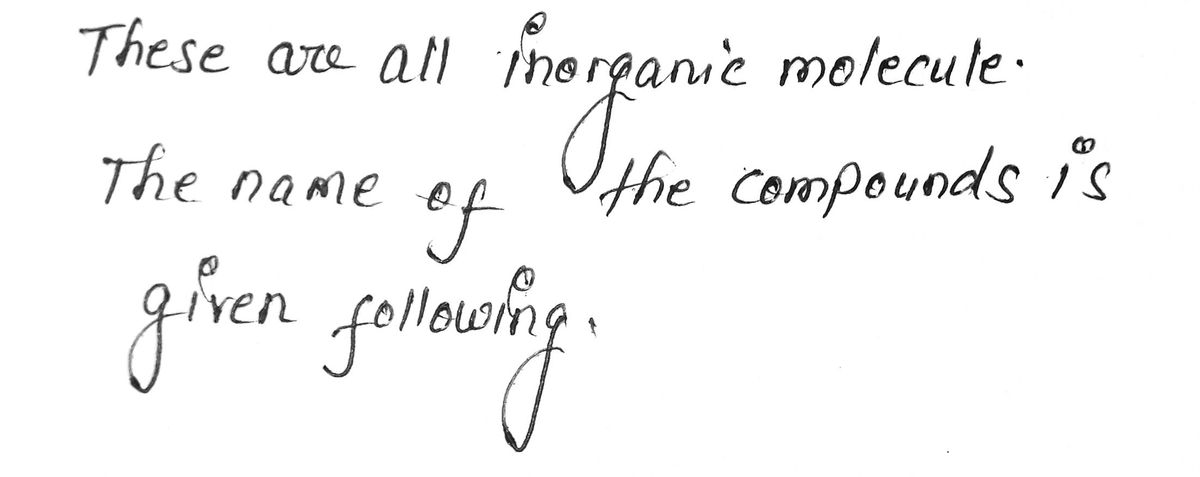 These are all inorganic molecule.
The name of the compounds is
given following.